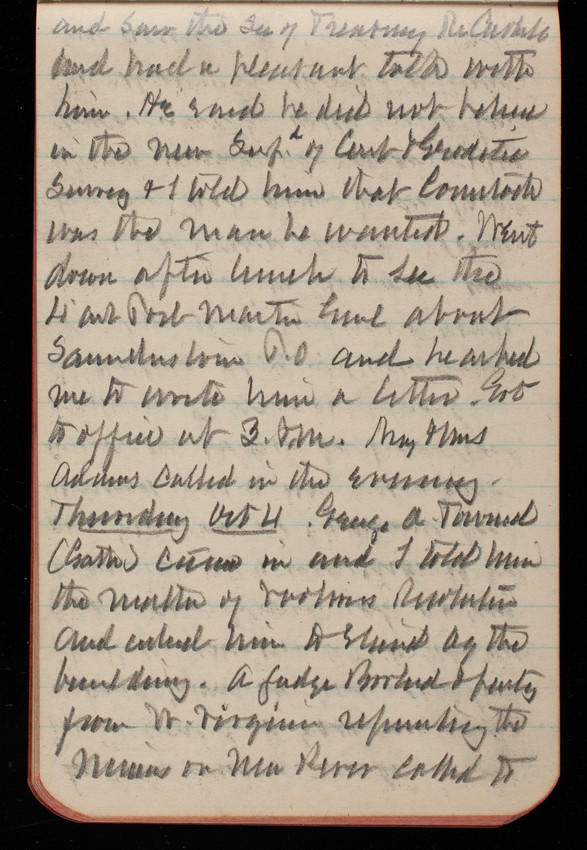 and saw the Sec of Treasury Mr Carlisle
and had a pleasant talk with
him. He said he did not believe
in the new Supt of Coast & Geodetic
Survey & I told him that Comstock
was the man he wanted. Went
down after lunch to see the
4 ast Post Master Genl about
Saunderstown P.O. and he asked
me to write him a letter. Got
to office at 3. P.M. Maj & Mrs
Adams called in the evening.
Thursday Oct 4 George A Townsend
(Gath) came in and I told him
the matter of Resolution
and asked him to stand by the
building. A Judge & party
from W. Virginia representing the
Mines on New River called to